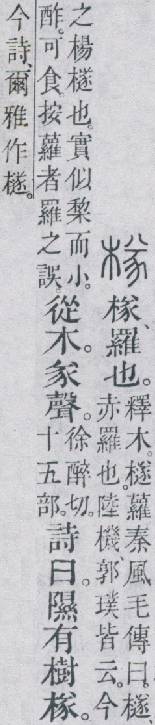 𣔾、羅也。釋木。檖蘿秦風毛傳曰。檖赤羅也。陸機郭璞皆云。今
之楊檖也。實似棃而小。酢。可食按蘿者羅之誤。從木㒸聲。徐醉切。十五部。詩曰。隰有樹𣔾。
今詩、爾雅作檖。